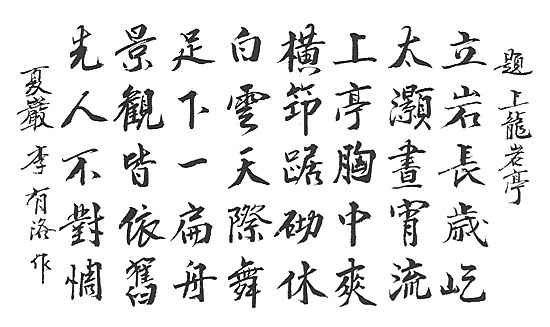 題上龍岩亭
立岩長歲屹
太灝晝宵流
上亭胸中爽
橫筇踞砌休
白雲天際舞
足下一扁舟
景觀皆依舊
先人不對惆
夏巖 李有洛 作